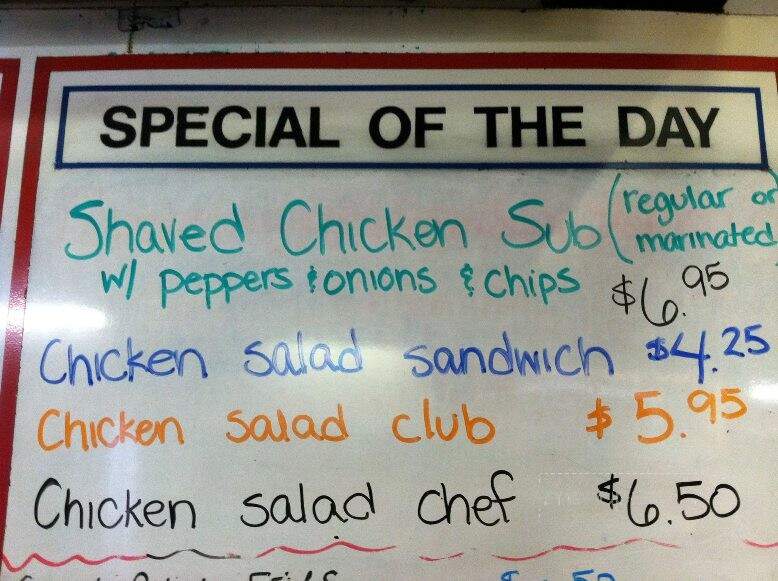 SPECIAL OF THE DAY
Shaved Chicken Sub (regular or marinated
w/ peppers & onions & chips $6.95
Chicken salad sandwich $4.25
Chicken salad club $5.95
Chicken salad chef $6.50